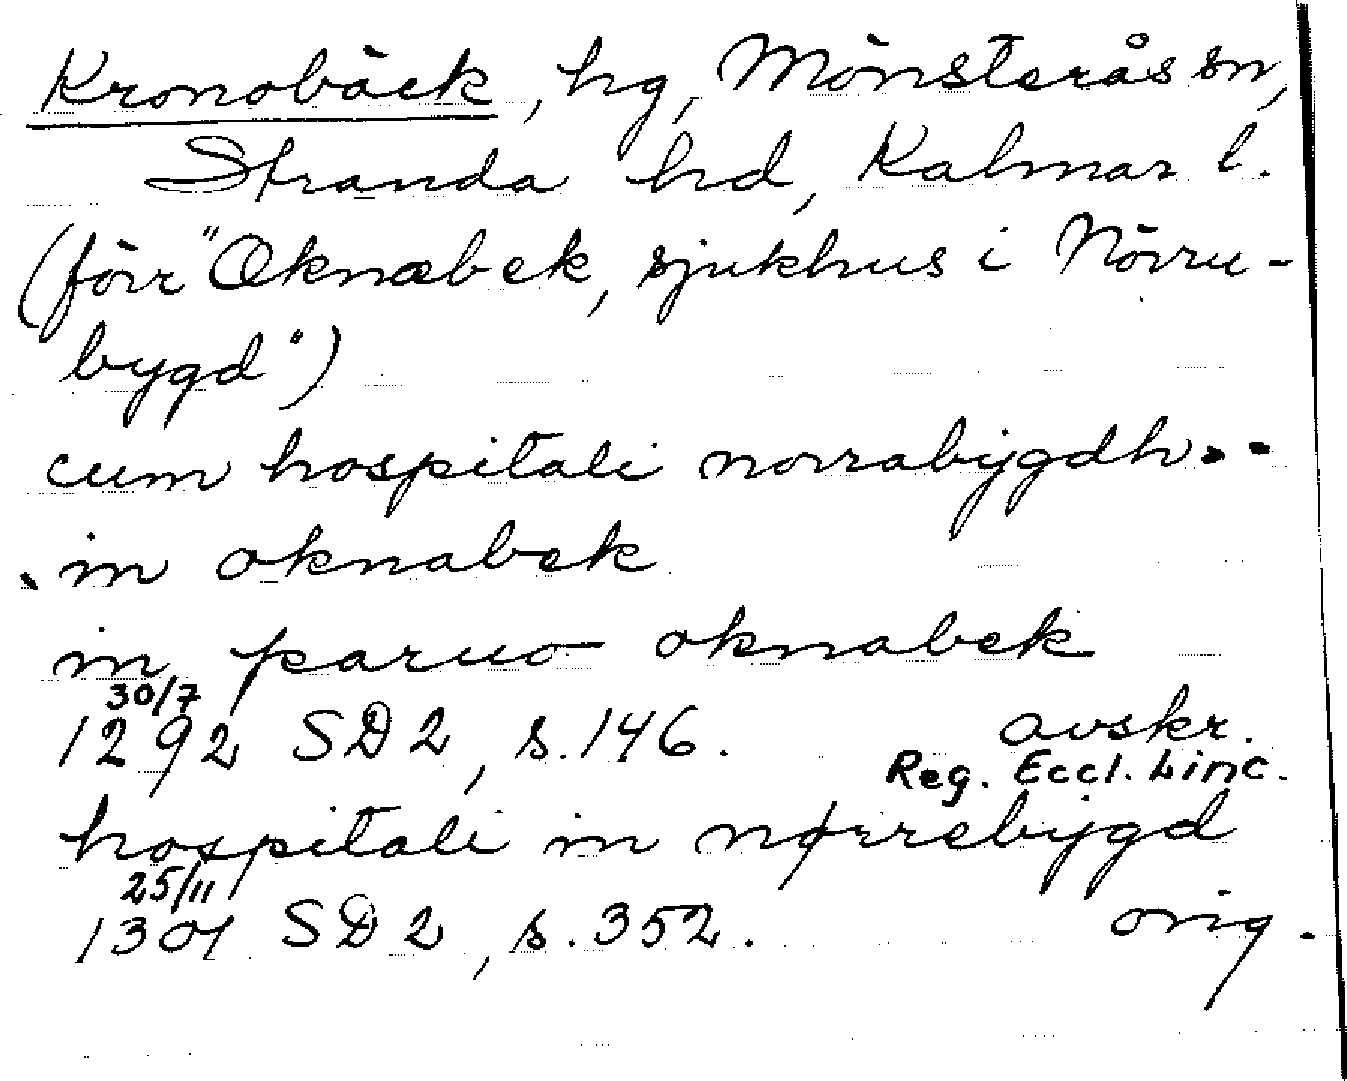 Kronobäck, hg, Mönsterås sn,
Stranda hd, Kalmar l.
(förr "Oknæbek, sjukhus i Nörru-
bygd")
cum hospitali norrabygdh..
. in oknabek
in paruo oknabek
30/7
1292 SD2, s.146. avskr.
Reg. Eccl. Linc.
hospitali in nørrebygd
25/11
1301 SD2, s.352. orig.